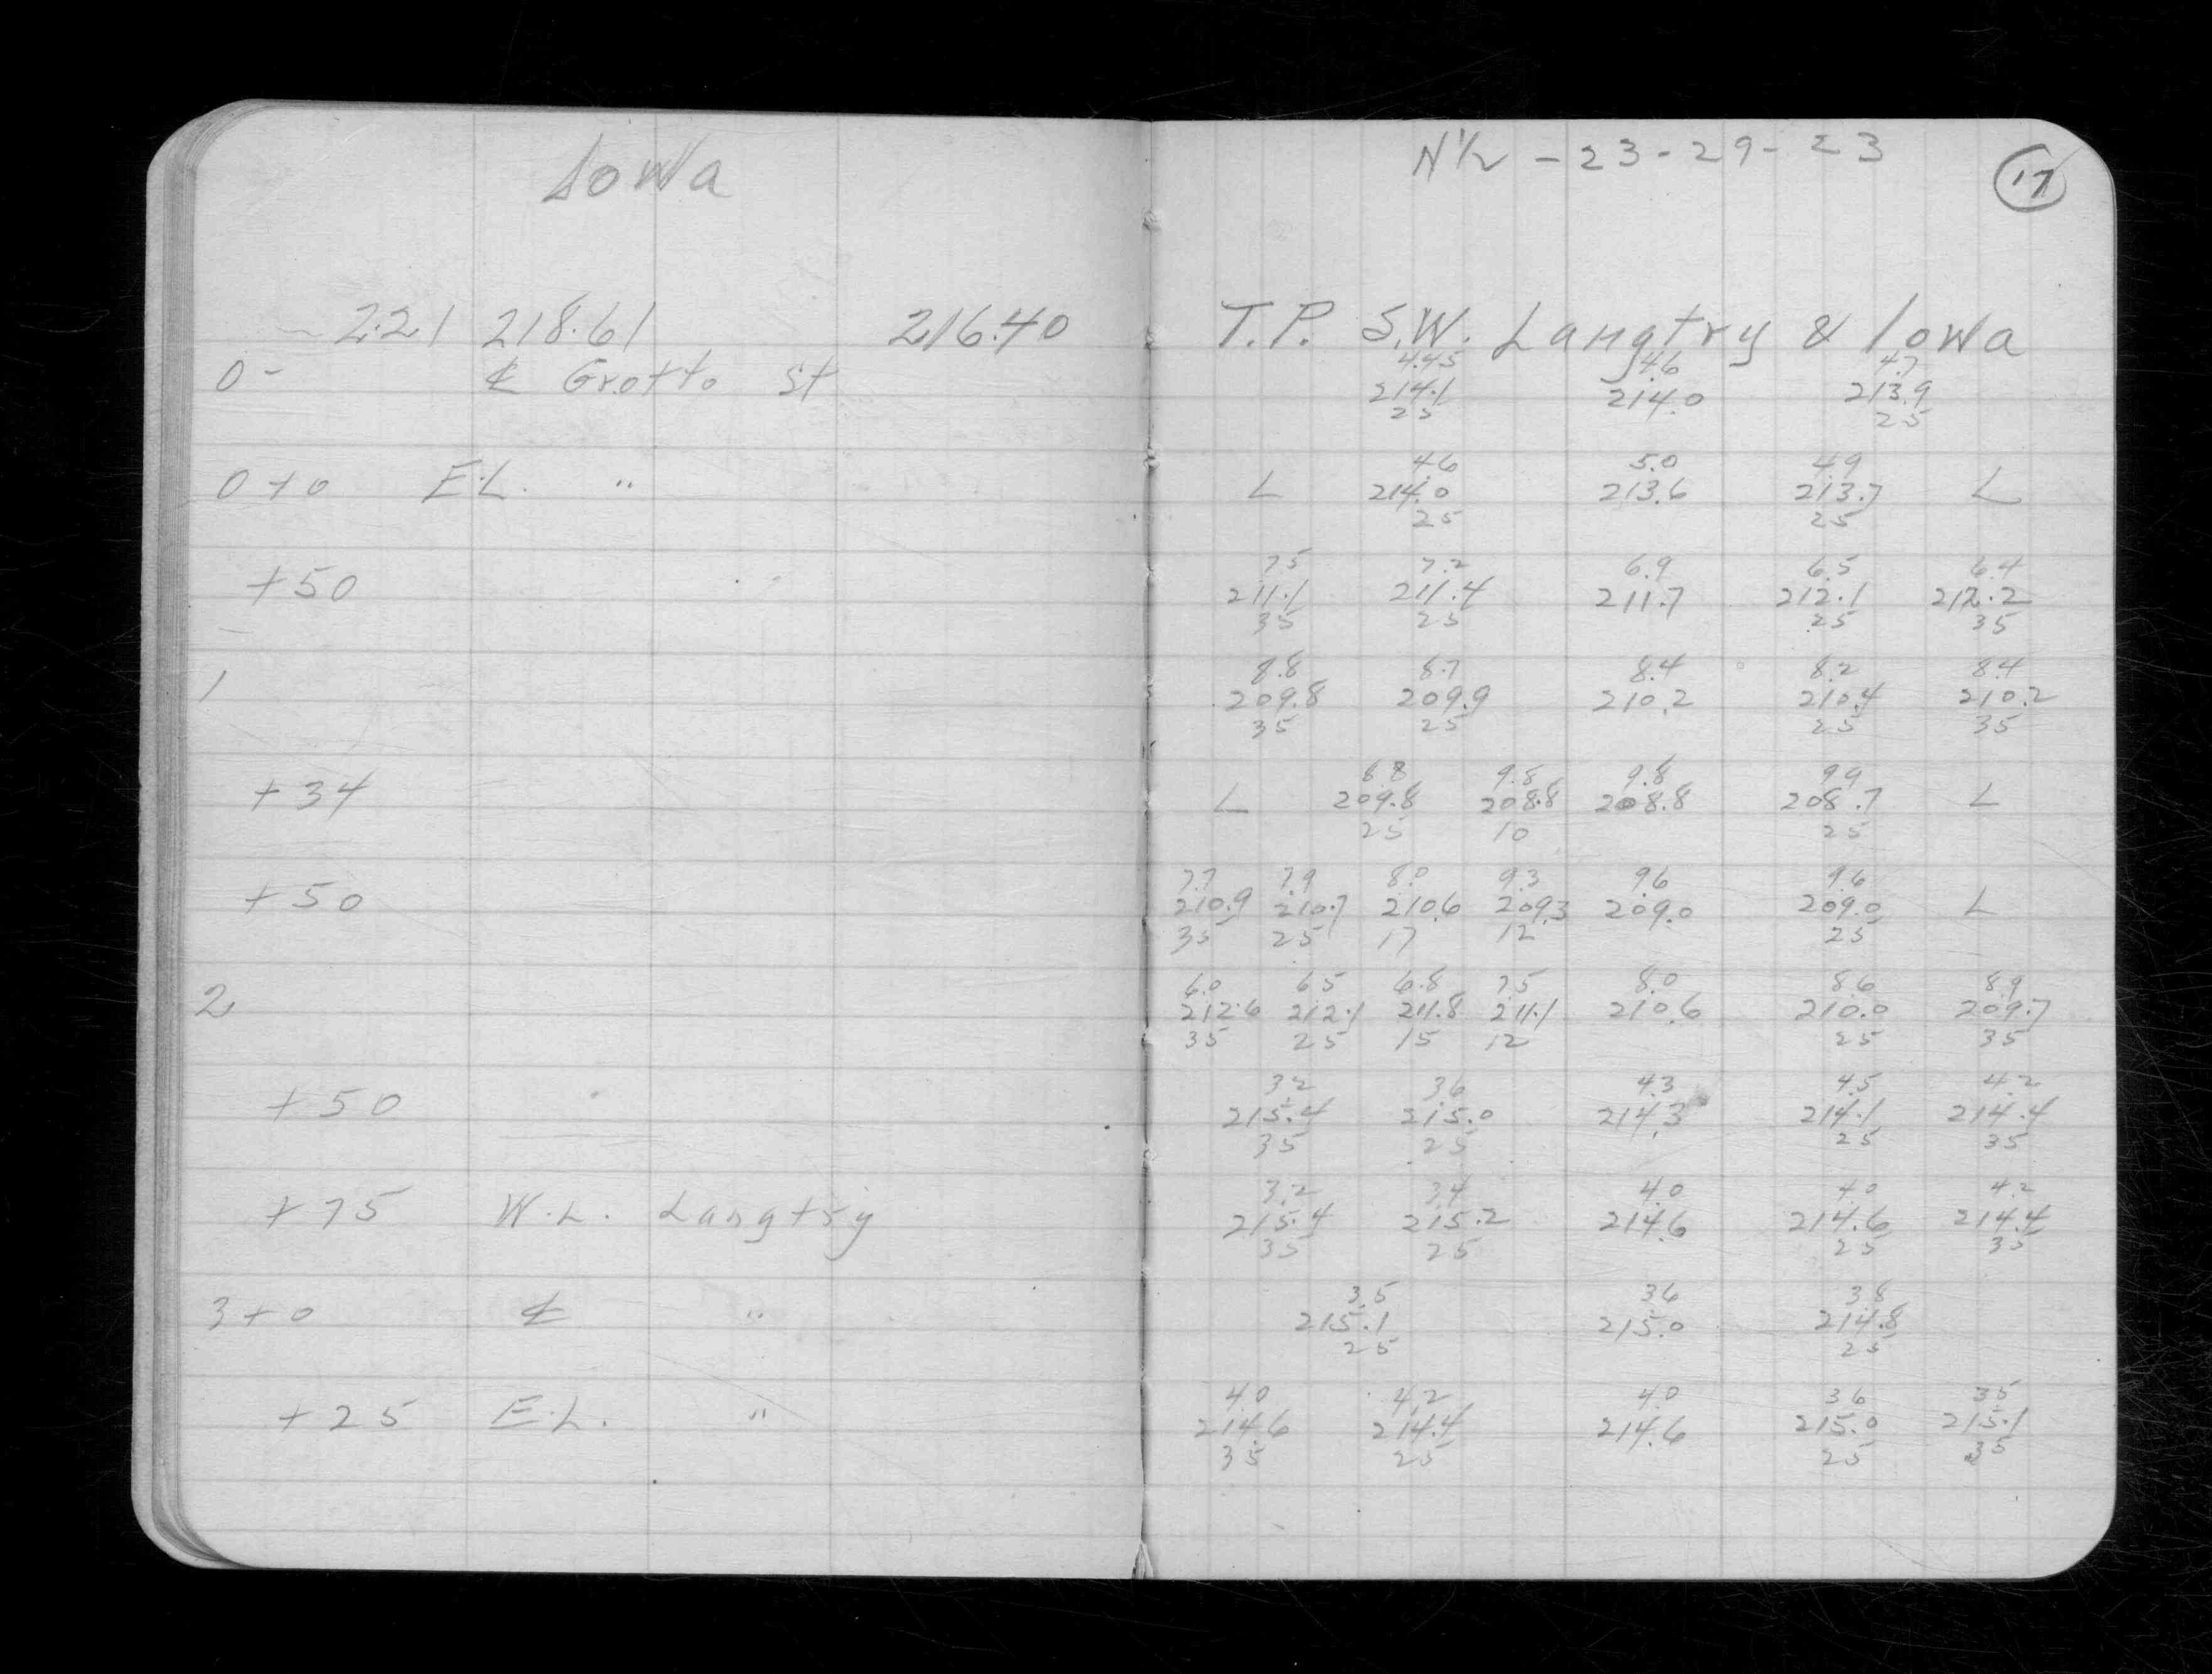 Iowa
2.21 218.61 216.40
0- ℄ Grotto St
0+0 E.L. "
+50
1
+34
+50
2
+50
+75 W.L. Langtry
3+0 ℄ "
+25 E.L. "
N½ - 23-29-23
17
T.P. S.W. Langtry & Iowa
4.45 4.6 4.7
214.1 214.0 213.9
25 25
4.6 5.0 4.9
L 214.0 213.6 213.7 L
25 25
7.5 7.2 6.9 6.5 6.4
211.1 211.4 211.7 212.1 212.2
35 25 25 35
8.8 8.7 8.4 8.2 8.4
209.8 209.9 210.2 210.4 210.2
35 25 25 35
8.8 9.8 9.8 9.9
L 209.8 208.8 208.8 208.7 L
25 10 25
7.7 7.9 8.0 9.3 9.6 9.6
210.9 210.7 210.6 209.3 209.0 209.0 L
35 25 17 12 25
6.0 6.5 6.8 7.5 8.0 8.6 8.9
212.6 212.1 211.8 211.1 210.6 210.0 209.7
35 25 15 12 25 35
3.2 3.6 4.3 4.5 4.2
215.4 215.0 214.3 214.1 214.4
35 25 25 35
3.2 3.4 4.0 4.0 4.2
215.4 215.2 214.6 214.6 214.4
35 25 25 35
3.5 3.6 3.8
215.1 215.0 214.8
25 25
4.0 4.2 4.0 3.6 3.5
214.6 214.4 214.6 215.0 215.1
35 25 25 35